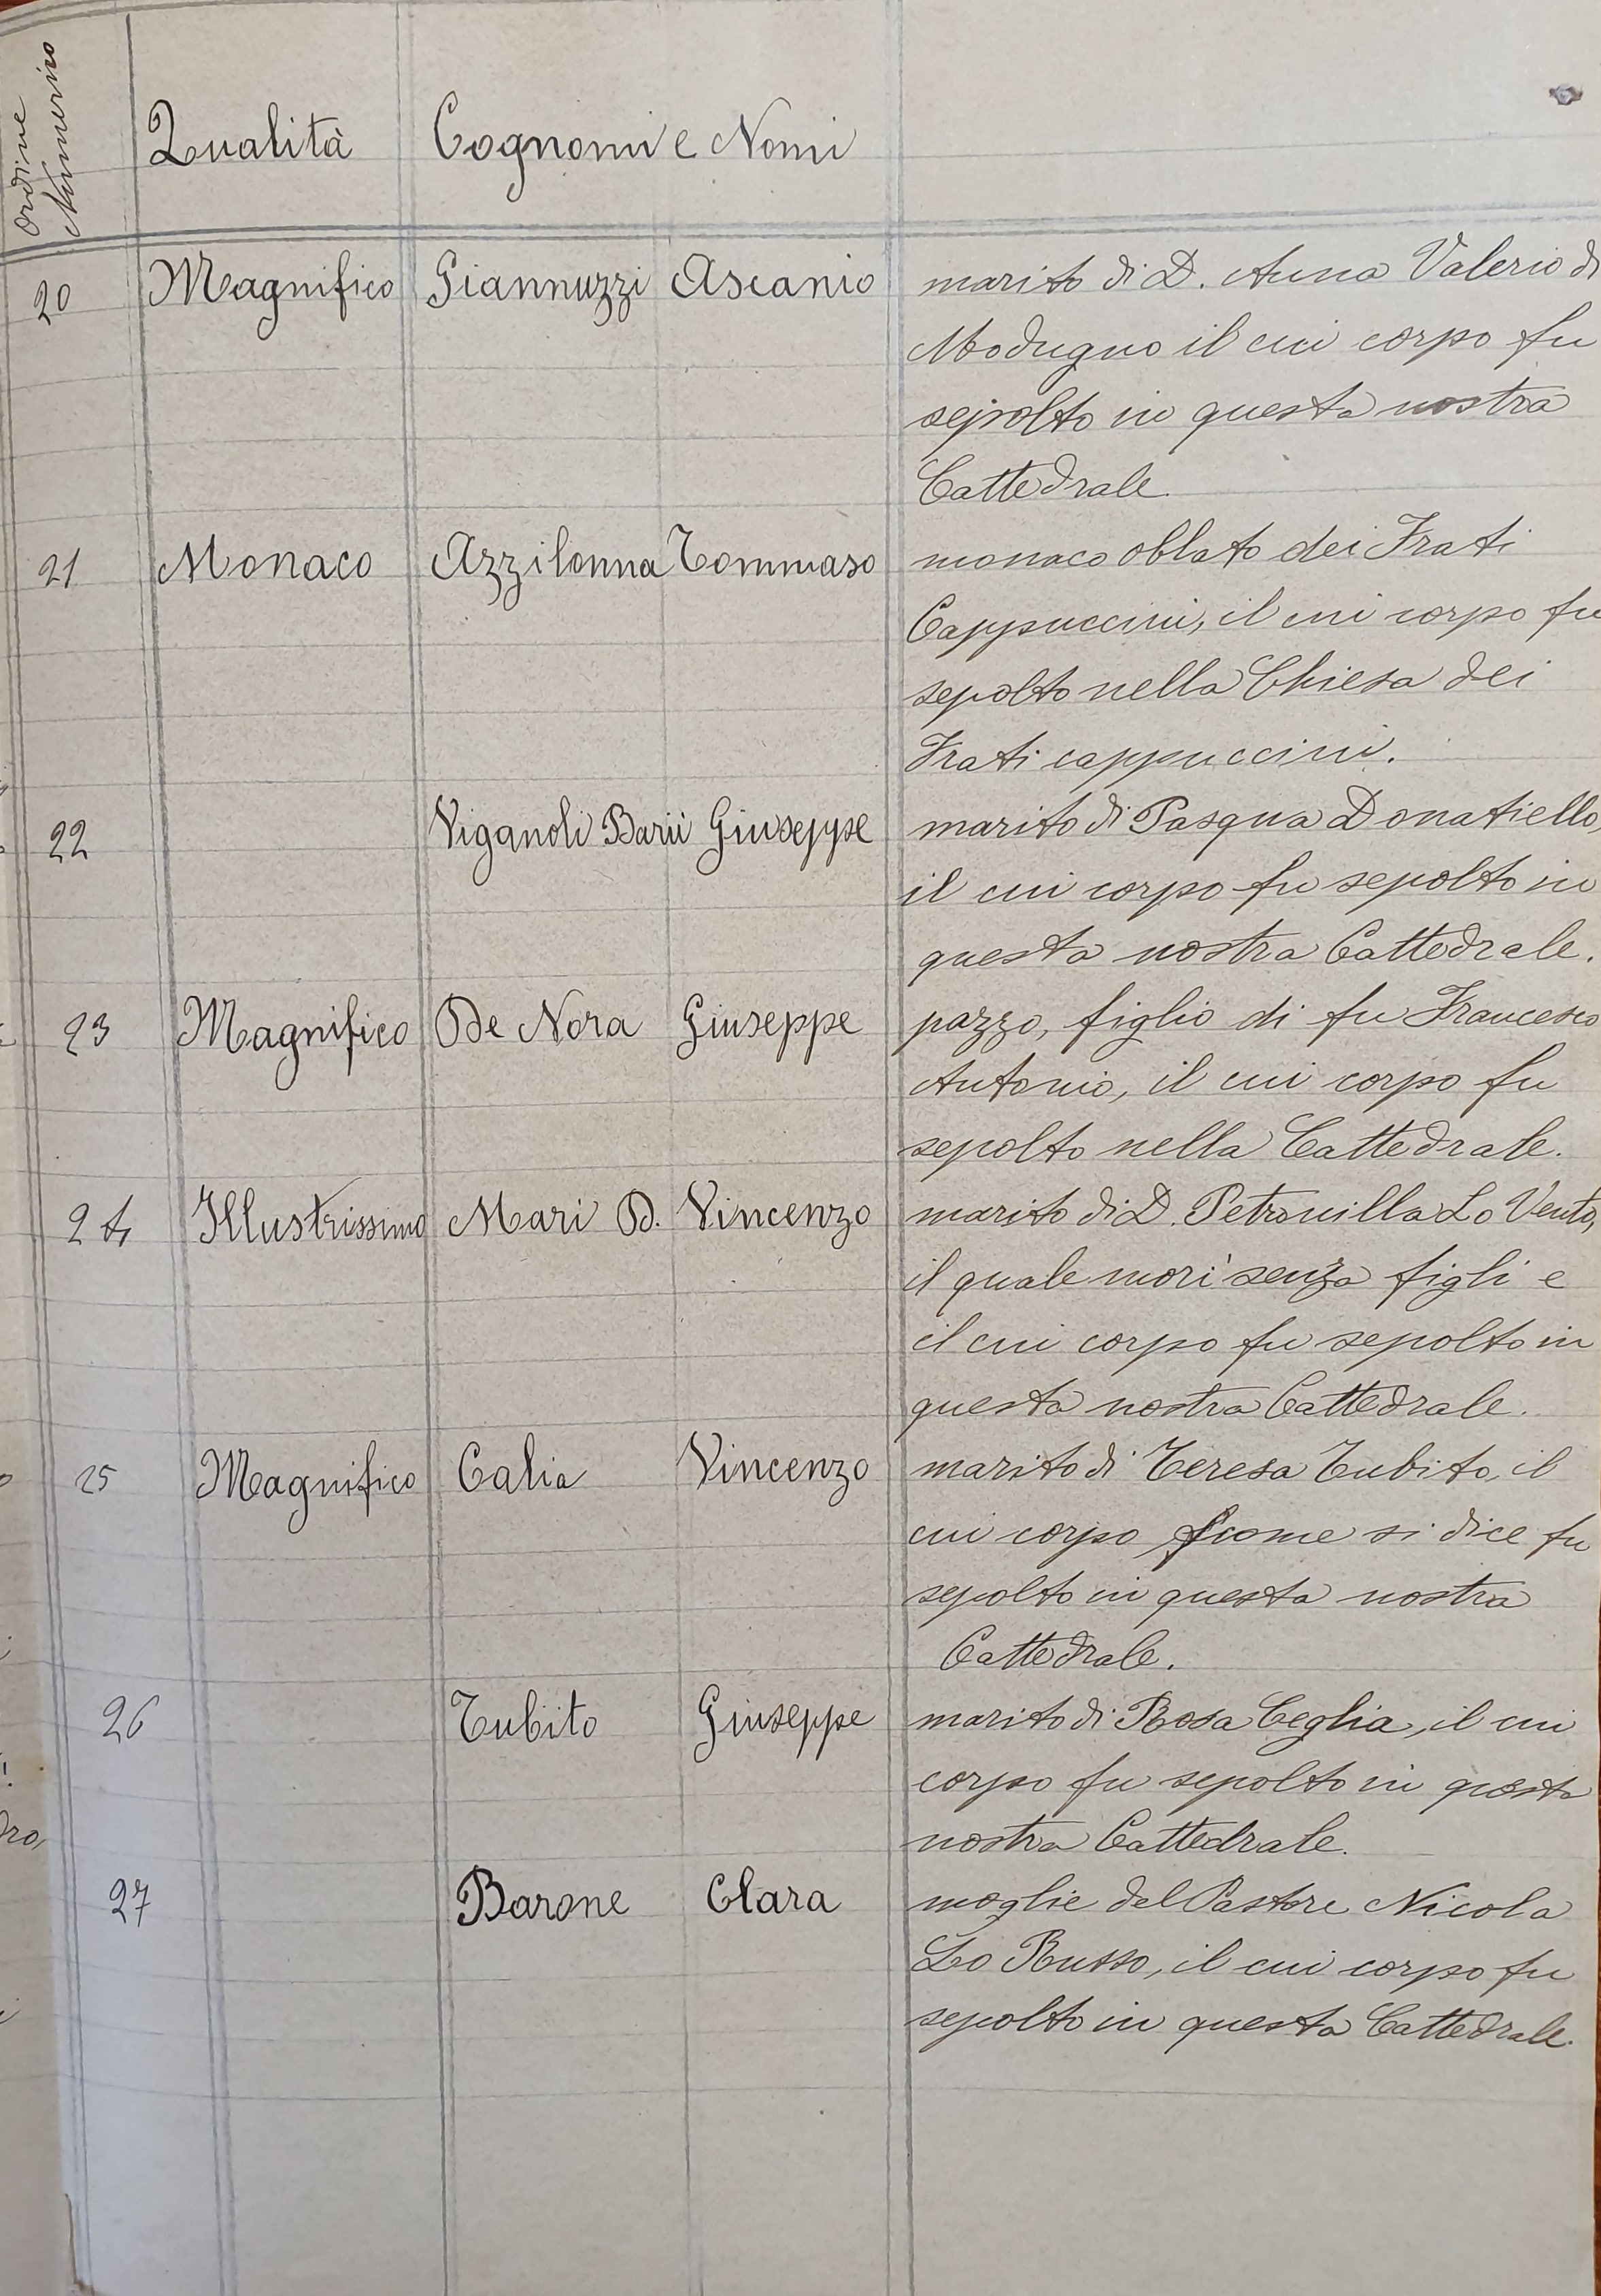 Ordine Numerico
Qualità Cognomi e Nomi
20 Magnifico Giannuzzi Ascanio marito di D. Anna Valerio di
Modugno il cui corpo fu
sepolto in questa nostra
Cattedrale.
21 Monaco Azzilonna Tommaso monaco oblato dei Frati
Cappuccini, il cui corpo fu
sepolto nella Chiesa dei
Frati cappuccini.
22 Viganoli Barii Giuseppe marito di Pasqua Donatiello,
il cui corpo fu sepolto in
questa nostra Cattedrale.
23 Magnifico De Nora Giuseppe pazzo, figlio di fu Francesco
Antonio, il cui corpo fu
sepolto nella Cattedrale.
24 Illustrissimo Mari D. Vincenzo marito di D. Petronilla Lo Vento,
il quale morì senza figli e
il cui corpo fu sepolto in
questa nostra Cattedrale.
25 Magnifico Calia Vincenzo marito di Teresa Tubito, il
cui corpo come si dice fu
sepolto in questa nostra
Cattedrale.
26 Tubito Giuseppe marito di Rosa Ceglia, il cui
corpo fu sepolto in questa
nostra Cattedrale.
27 Barone Clara moglie del Pastore Nicola
Lo Russo, il cui corpo fu
sepolto in questa Cattedrale.